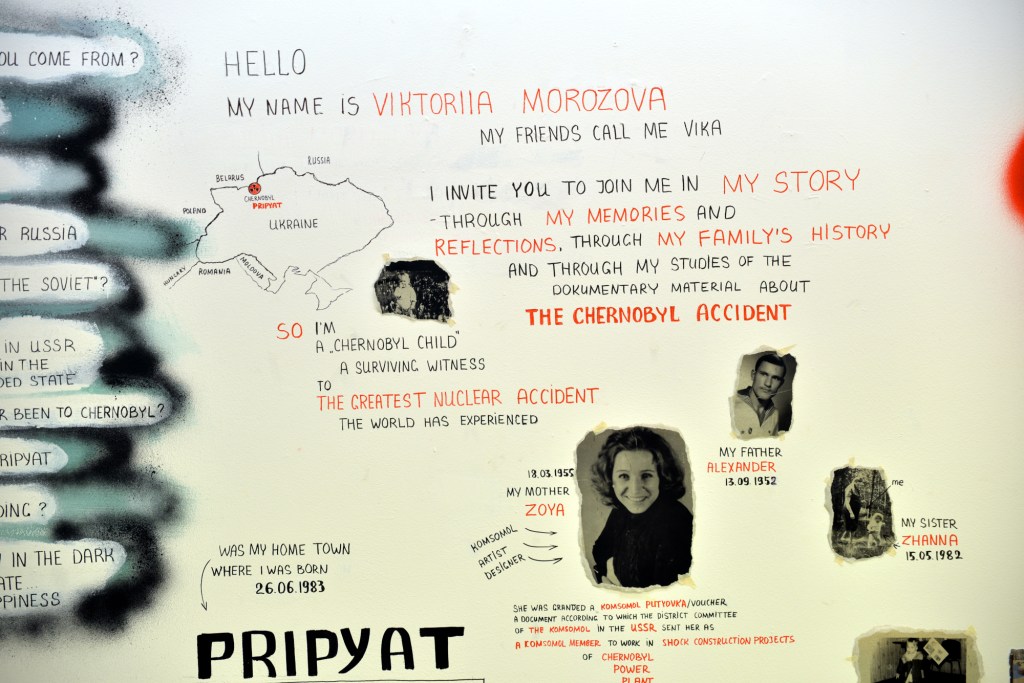 OU COME FROM?
R RUSSIA
THE SOVIET"?
IN USSR
IN THE
DED STATE
R BEEN TO CHERNOBYL?
RIPYAT
DING?
IN THE DARK
ATE...
PPINESS
HELLO
MY NAME IS VIKTORIIA MOROZOVA
MY FRIENDS CALL ME VIKA
RUSSIA
BELARUS
CHERNOBYL
PRIPYAT
POLAND
UKRAINE
HUNGARY
ROMANIA
MOLDOVA
I INVITE YOU TO JOIN ME IN MY STORY
-THROUGH MY MEMORIES AND
REFLECTIONS, THROUGH MY FAMILY'S HISTORY
AND THROUGH MY STUDIES OF THE
DOKUMENTARY MATERIAL ABOUT
THE CHERNOBYL ACCIDENT
SO I'M
A „CHERNOBYL CHILD"
A SURVIVING WITNESS
TO
THE GREATEST NUCLEAR ACCIDENT
THE WORLD HAS EXPERIENCED
MY FATHER
ALEXANDER
13.09.1952
18.03.1955
MY MOTHER
ZOYA
KOMSOMOL
ARTIST
DESIGNER
me
MY SISTER
ZHANNA
15.05.1982
WAS MY HOME TOWN
WHERE I WAS BORN
26.06.1983
PRIPYAT
SHE WAS GRANDED A KOMSOMOL PUTYOVKA/VOUCHER
A DOCUMENT ACCORDING TO WHICH THE DISTRICT COMMITTEE
OF THE KOMSOMOL IN THE USSR SENT HER AS
A KOMSOMOL MEMBER TO WORK IN SHOCK CONSTRUCTION PROJECTS
OF CHERNOBYL
POWER
PLANT